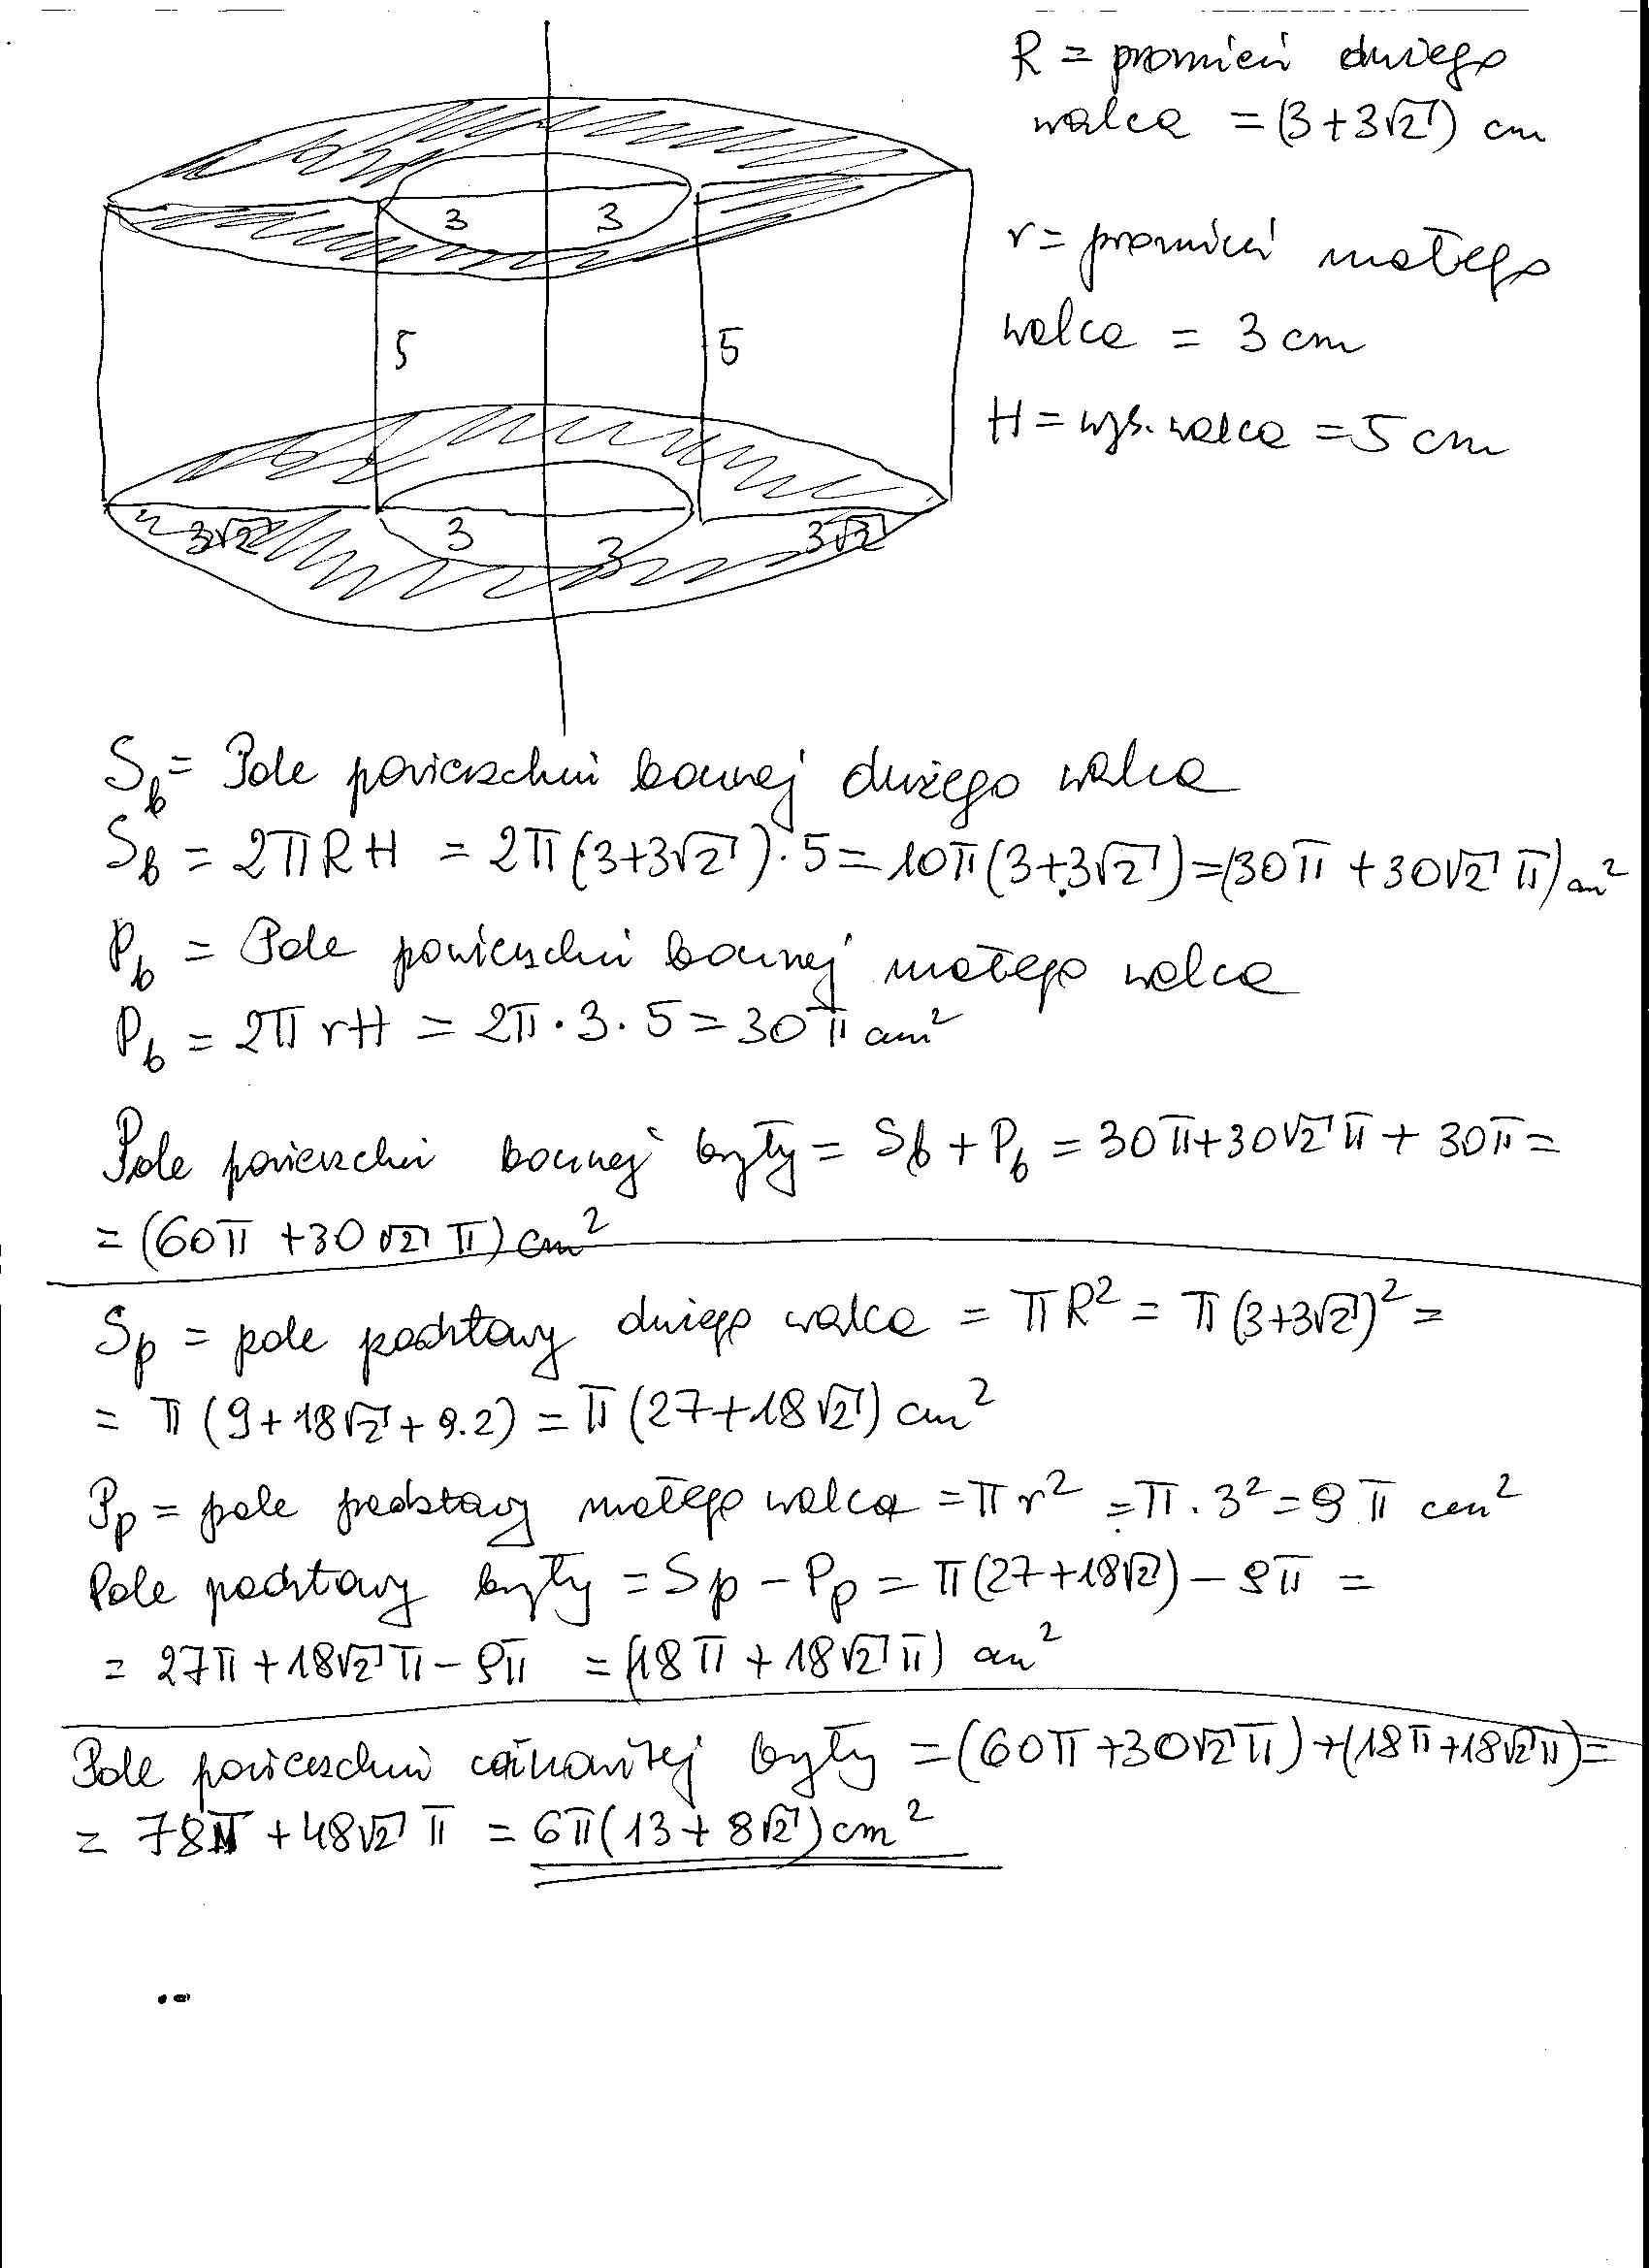 R = promień dużego
walca = (3+3√2) cm
3 3
r = promień małego
walca = 3 cm
5 5
H = wys. walca = 5 cm
3√2 3 3 3√2
S_b = Pole powierzchni bocznej dużego walca
S_b = 2πRH = 2π(3+3√2)·5 = 10π(3+3√2) = (30π + 30√2 π) cm²
P_b = Pole powierzchni bocznej małego walca
P_b = 2πrH = 2π·3·5 = 30π cm²
Pole powierzchni bocznej bryły = S_b + P_b = 30π+30√2 π + 30π =
= (60π + 30√2 π) cm²
S_p = pole podstawy dużego walca = πR² = π(3+3√2)² =
= π(9+18√2+9·2) = π(27+18√2) cm²
P_p = pole podstawy małego walca = πr² = π·3² = 9π cm²
Pole podstawy bryły = S_p − P_p = π(27+18√2) − 9π =
= 27π+18√2 π − 9π = (18π + 18√2 π) cm²
Pole powierzchni całkowitej bryły = (60π+30√2 π)+(18π+18√2 π) =
= 78π + 48√2 π = 6π(13+8√2) cm²